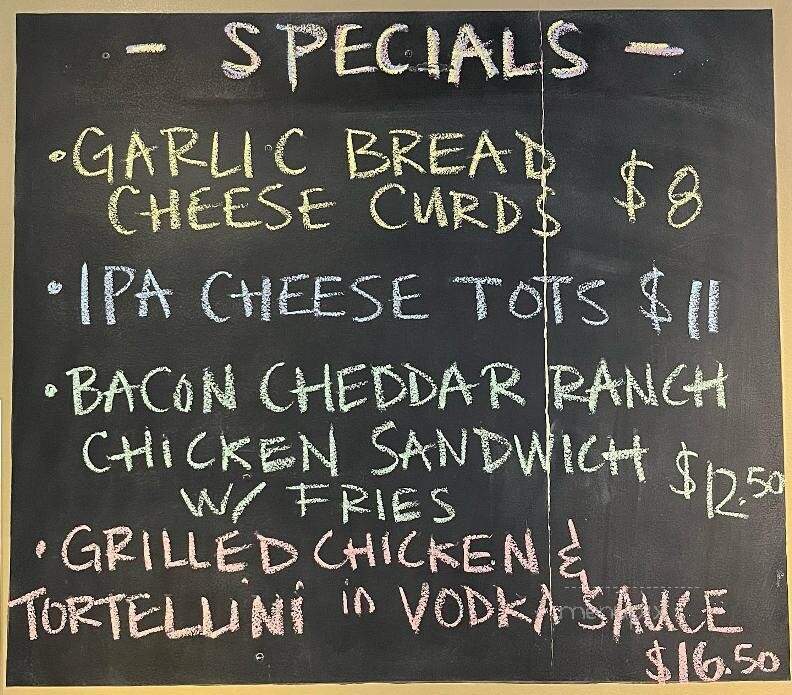 - SPECIALS -
• GARLIC BREAD
CHEESE CURDS $8
• IPA CHEESE TOTS $11
• BACON CHEDDAR RANCH
CHICKEN SANDWICH $12.50
W/ FRIES
• GRILLED CHICKEN &
TORTELLINI in VODKA SAUCE
$16.50